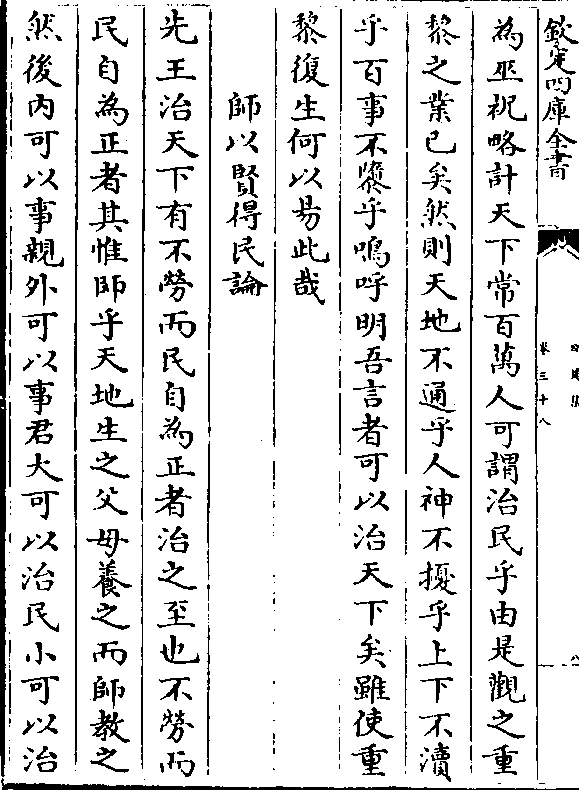 欽定四庫全書
卷三十八
八
為巫祝略計天下常百萬人可謂治民乎由是觀之重
黎之業已矣然則天地不通乎人神不擾乎上下不瀆
乎百事不隳乎嗚呼明吾言者可以治天下矣雖使重
黎復生何以易此哉
師以賢得民論
先王治天下有不勞而民自為正者治之至也不勞而
民自為正者其惟師乎天地生之父母養之而師教之
然後内可以事親外可以事君大可以治民小可以治